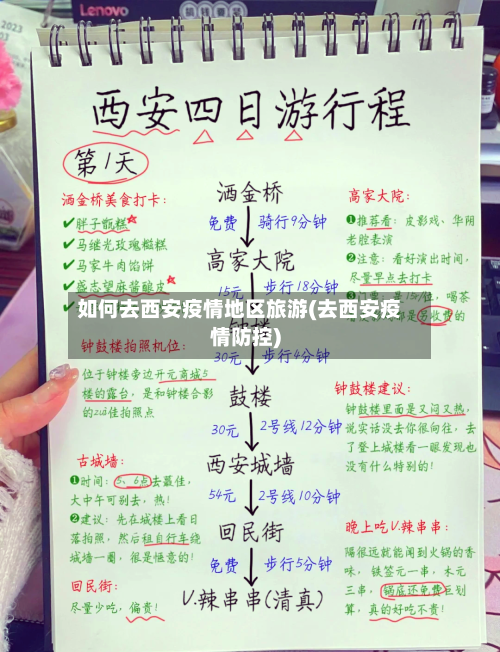 Lenovo
西安四日游行程
第1天
洒金桥美食打卡:
✔胖子甑糕★
✔马继光玫瑰糍糕
✔马家牛肉馅饼
✔盛志望麻酱酿皮★
洒金桥
免费 骑行9分钟
高家大院
15元 步行18分钟
高家大院:
❶推荐看: 皮影戏、华阴
老腔表演
❷注意: 看好演出时间,
尽量早点去打卡
如何去西安疫情地区旅游(去西安疫
情防控)
钟鼓楼拍照机位:
位于钟楼旁边开元商城5
楼的露台, 是和钟楼合影
的
佳拍照点
30元 步行4分钟
鼓楼
30元 2号线12分钟
西安城墙
54元 2号线10分钟
回民街
免费 步行5分钟
V.辣串串(清真)
钟鼓楼建议:
钟鼓楼里面是又闷又热,
说实话没去你很向往, 去
了登上城楼看一眼发现也
没有什么特别的!
古城墙:
❶时间: 5、6点去最佳,
大中午可别去, 热!
❷建议: 先在城楼上看日
落拍照, 然后租自行车绕
城墙一圈, 很是惬意的!
回民街:
尽量少吃, 偏贵!
晚上吃V.辣串串:
隔很远就能闻到火锅的香
味, 铁签元一串, 木元
三串, 锅底还免费巨划
算, 真的好吃不贵!